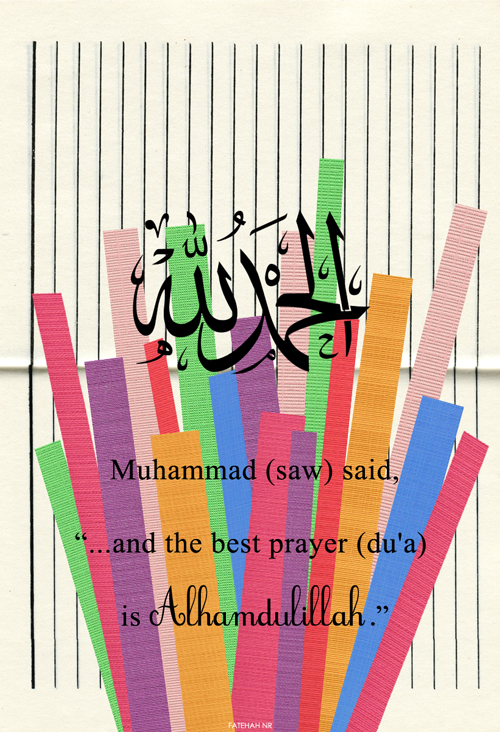 الحمد لله
Muhammad (saw) said,
“...and the best prayer (du'a)
is Alhamdulillah.”
FATEHAH NR